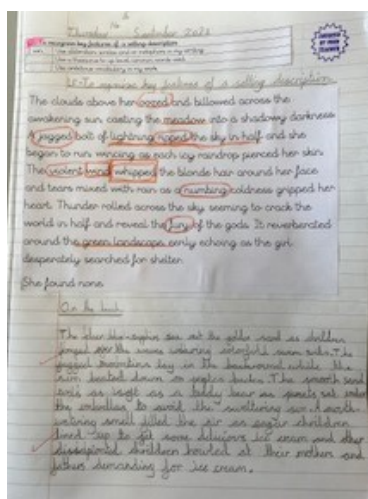 Thursday 16th September 2021
To recognise key features of a setting description
Use a thesaurus to up level common words used
Use ambitious vocabulary in my work
LF-To recognise key features of a setting description
The clouds above her oozed and billowed across the
awakening sun casting the meadow into a shadowy darkness.
A jagged bolt of lightning ripped the sky in half and she
began to run wincing as each icy raindrop pierced her skin.
The violent wind whipped the blonde hair around her face
and tears mixed with rain as a numbing coldness gripped her
heart. Thunder rolled across the sky seeming to crack the
world in half and reveal the fury of the gods. It reverberated
around the green landscape eerily echoing as the girl
desperately searched for shelter.
She found none.
On the beach
The clear blue sea met the golden sand as children
jumped over the waves wearing colorful swim suits. The
jagged mountains lay in the background while the
sun beated down on peoples backs. The smooth sand
was as soft as a teddy bear as parents sat under
the umbrellas to avoid the sweltering sun. A mouth-
watering smell filled the air as eager children
lined up to get some delicious ice cream and other
children howled at their mothers and
fathers demanding for ice cream.